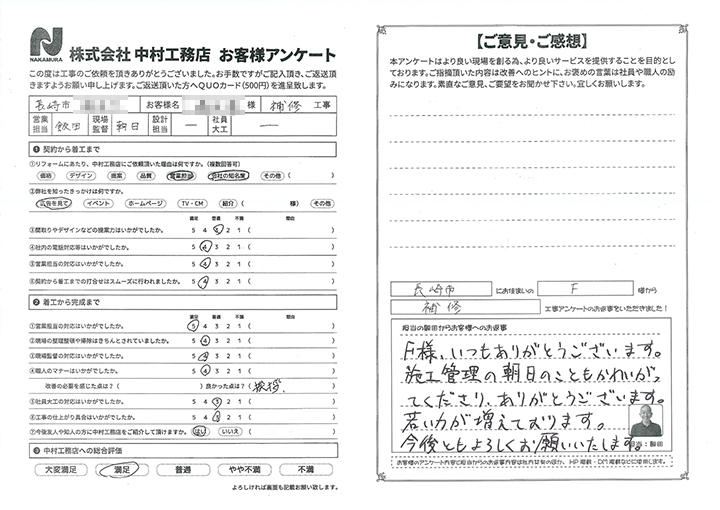 N
NAKAMURA
株式会社 中村工務店 お客様アンケート
この度は工事のご依頼を頂きありがとうございました。お手数ですがご記入頂き、ご返送頂
きますようお願い申し上げます。ご返送頂いた方へQUOカード(500円)を進呈致します。
長崎市 お客様名 様 補修 工事
営業担当 飯田 現場監督 朝日 設計担当 ー 社員大工 ー
❶ 契約から着工まで
①リフォームにあたり、中村工務店にご依頼頂いた理由は何ですか。(複数回答可)
価格 デザイン 提案 品質 営業担当 会社の知名度 その他 ( )
②弊社を知ったきっかけは何ですか。
広告を見て イベント ホームページ TV・CM 紹介 ( 様) その他
満足 普通 不満 理由
③間取りやデザインなどの提案力はいかがでしたか。 5 4 3 2 1 ( )
④社内の電話対応等はいかがでしたか。 5 4 3 2 1 ( )
⑤営業担当の対応はいかがでしたか。 5 4 3 2 1 ( )
⑥契約から着工までの打合せはスムーズに行われましたか。 5 4 3 2 1 ( )
❷ 着工から完成まで
満足 普通 不満 理由
①営業担当の対応はいかがでしたか。 5 4 3 2 1 ( )
②現場の整理整頓や掃除はきちんとされていましたか。 5 4 3 2 1 ( )
③現場監督の対応はいかがでしたか。 5 4 3 2 1 ( )
④職人のマナーはいかがでしたか。 5 4 3 2 1 ( )
改善の必要を感じた点は?( ) 良かった点は?( 挨拶. )
⑤社員大工の対応はいかがでしたか。 5 4 3 2 1 ( )
⑥工事の仕上がり具合はいかがでしたか。 5 4 3 2 1 ( )
⑦今後友人や知人の方に中村工務店をご紹介して頂けますか。 はい いいえ ( )
❸ 中村工務店への総合評価
大変満足 満足 普通 やや不満 不満
よろしければ裏面も記載お願い致します。
【ご意見・ご感想】
本アンケートはより良い現場を創る為、より良いサービスを提供することを目的とし
ております。ご指摘頂いた内容は改善へのヒントに、お褒めの言葉は社員や職人の励
みになります。素直なご意見、ご要望をお聞かせ下さい。宜しくお願いします。
長崎市 にお住まいの F 様から
補修 工事アンケートのお返事をいただきました!
担当の飯田からお客様へのお返事
F様、いつもありがとうございます。
施工管理の朝日のこともかわいがっ
てくださり、ありがとうございます。
若い力が増えております。
今後ともよろしくお願いいたします。
担当:飯田